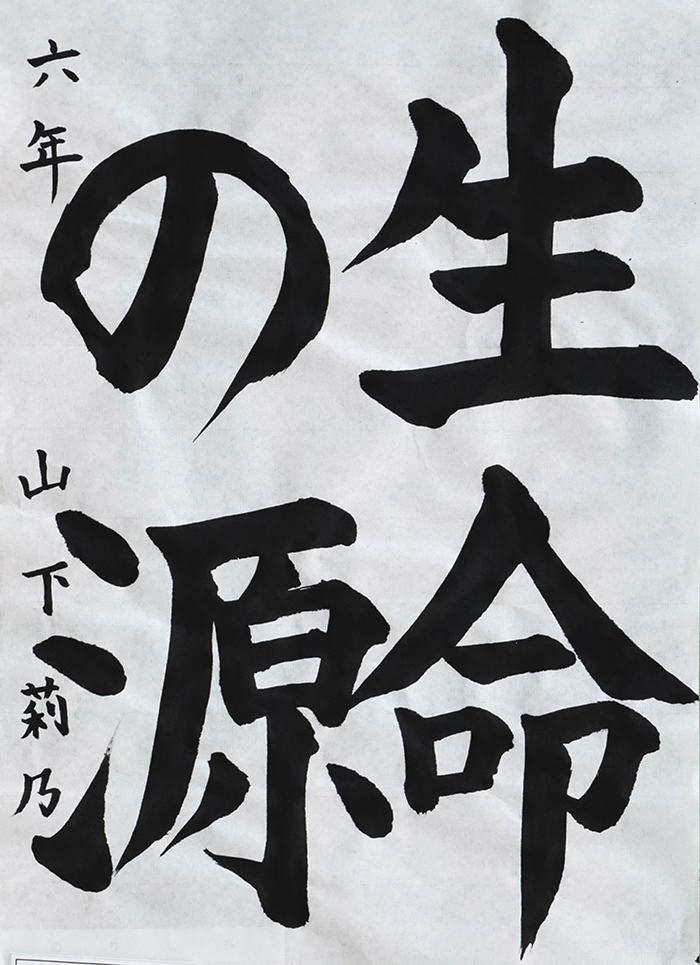 生命
の源
六年 山下莉乃